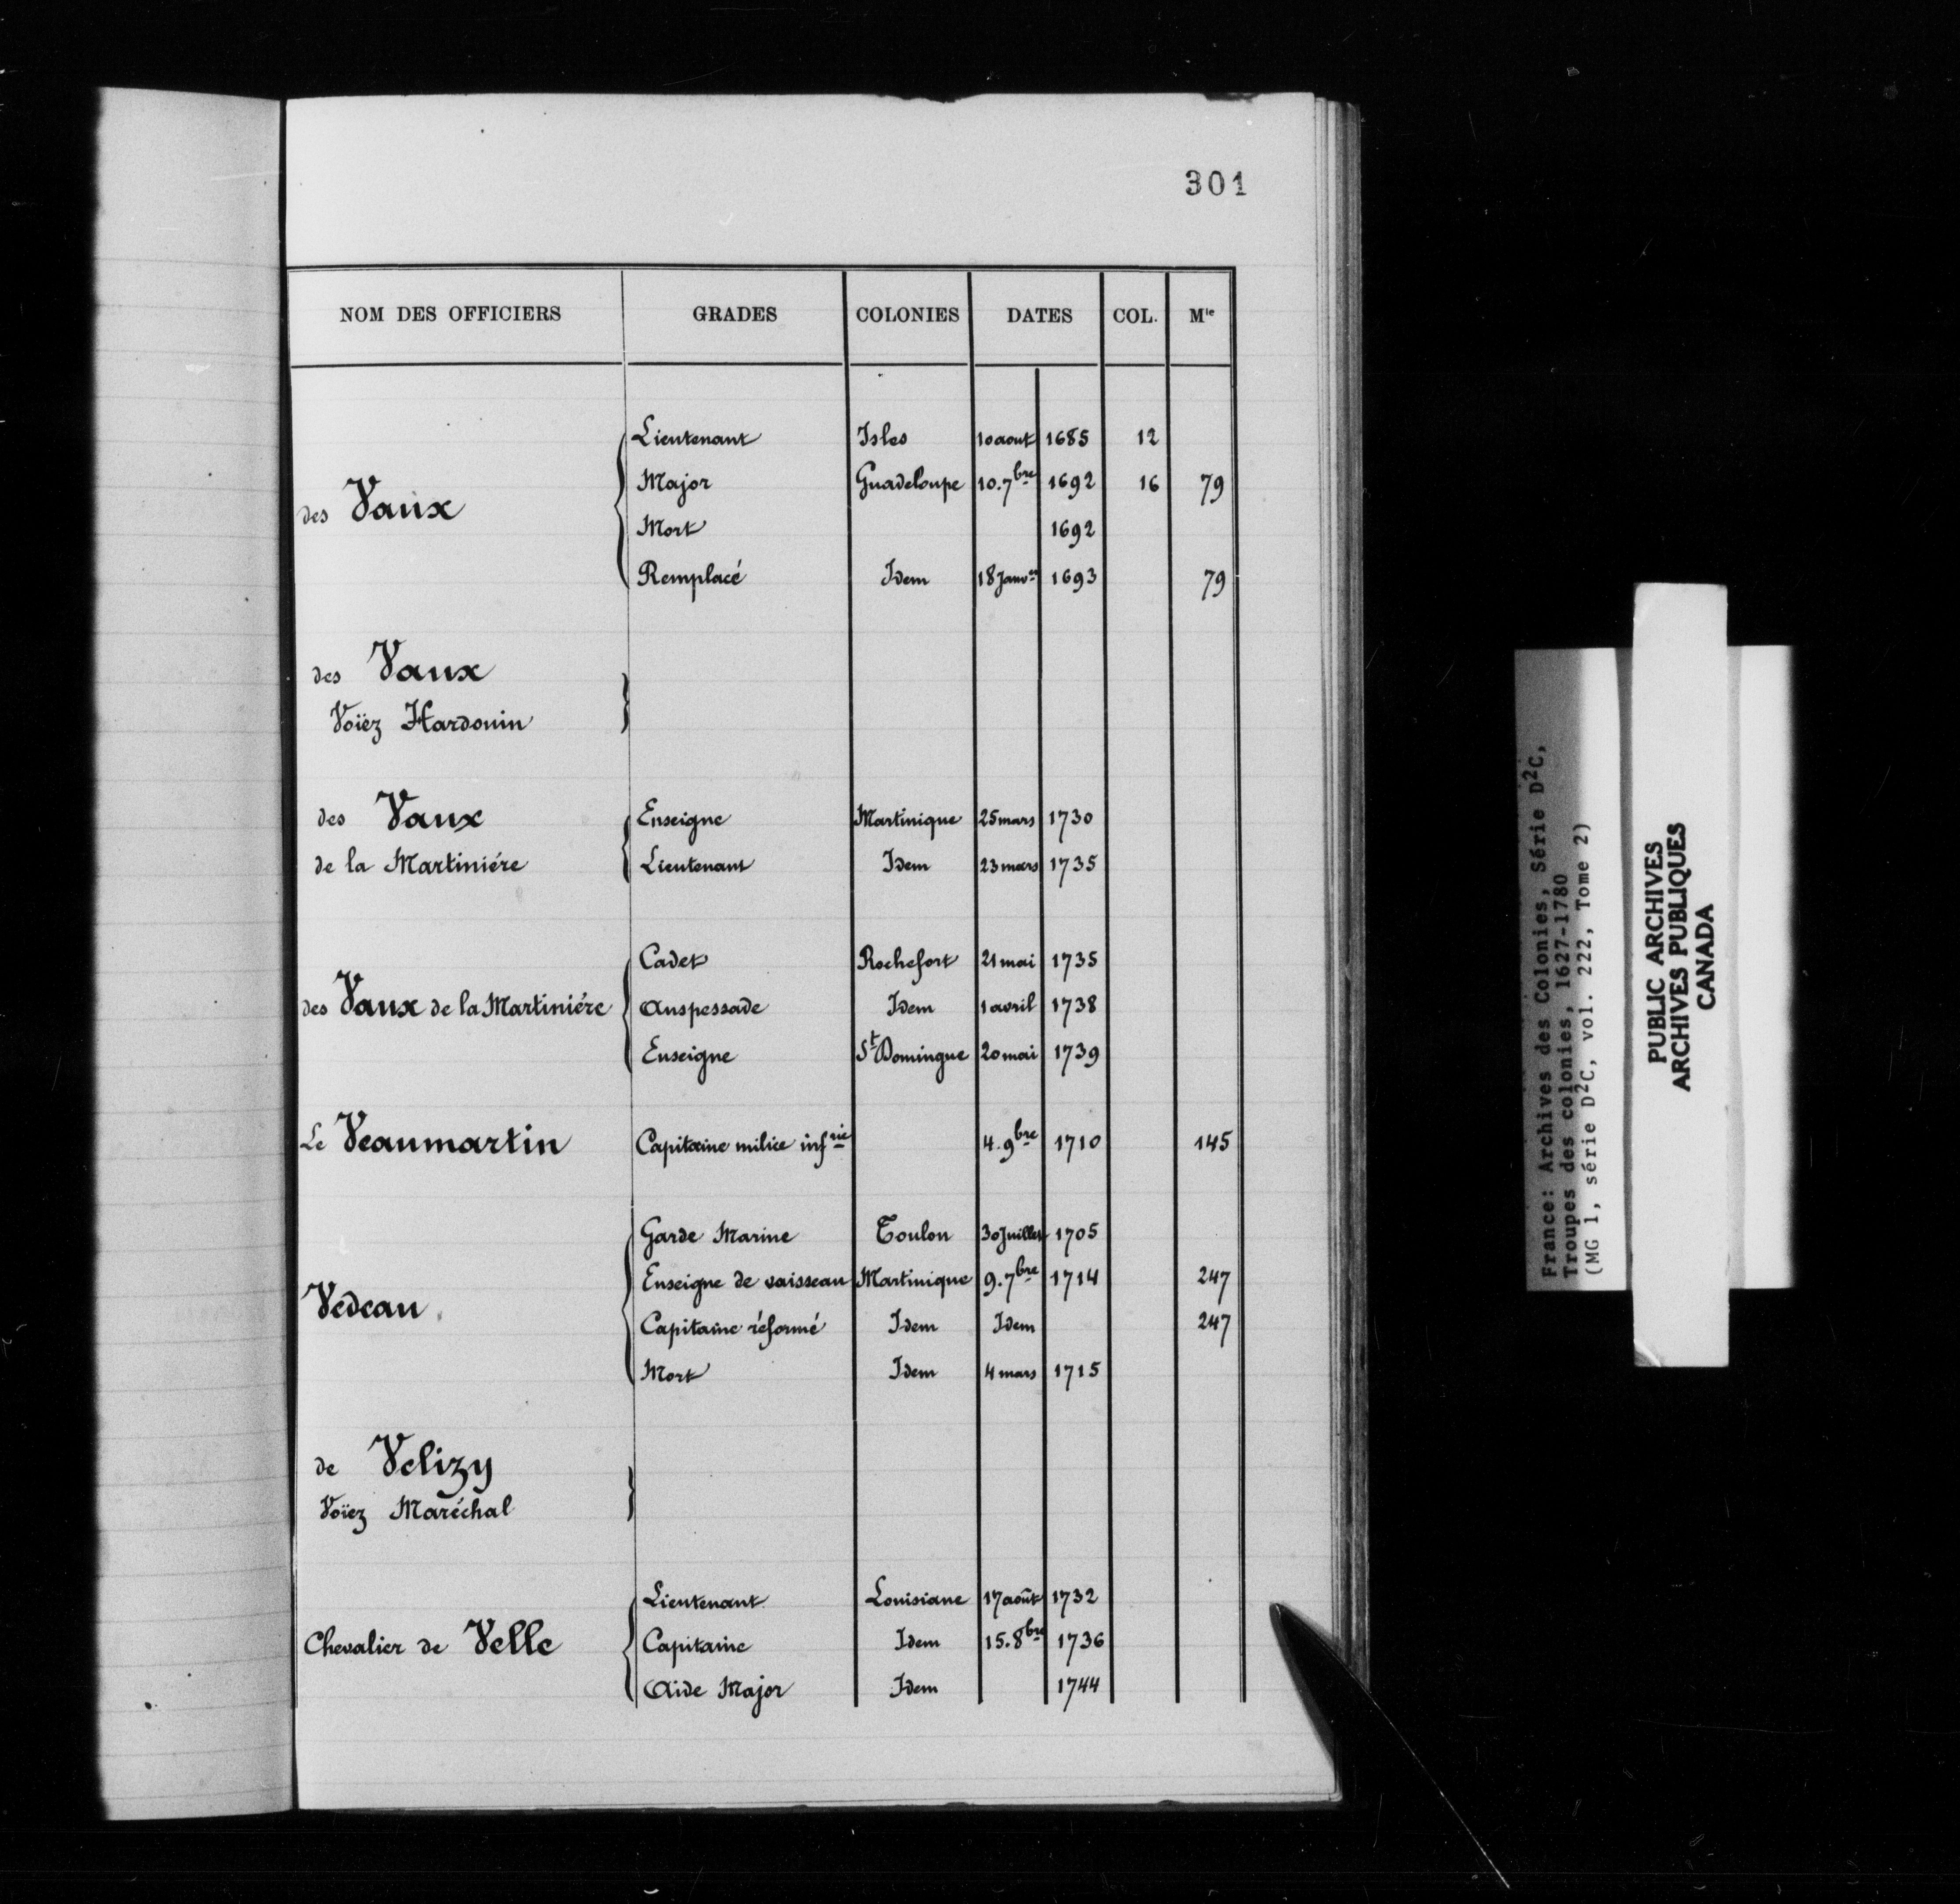 301
NOM DES OFFICIERS GRADES COLONIES DATES COL. Mie
Lieutenant Isles 10 aout 1685 12
des Vaux Major Guadeloupe 10.7bre 1692 16 79
Mort 1692
Remplacé Idem 18 Janver 1693 79
des Vaux
Voïez Hardouin
des Vaux Enseigne Martinique 25 mars 1730
de la Martiniére Lieutenant Idem 23 mars 1735
Cadet Rochefort 21 mai 1735
des Vaux de la Martiniére Anspessade Idem 1 avril 1738
Enseigne St Domingue 20 mai 1739
Le Veaumartin Capitaine milice infrie 4.9bre 1710 145
Garde Marine Toulon 30 Juillet 1705
Enseigne de vaisseau Martinique 9.7bre 1714 247
Vedeau Capitaine réformé Idem Idem 247
Mort Idem 4 mars 1715
de Velizy
Voïez Maréchal
Lieutenant Louisiane 17 août 1732
Chevalier de Velle Capitaine Idem 15.8bre 1736
Aide Major Idem 1744
France: Archives des Colonies, Série D2C,
Troupes des colonies, 1627-1780
(MG 1, série D2C, vol. 222, Tome 2)
PUBLIC ARCHIVES
ARCHIVES PUBLIQUES
CANADA